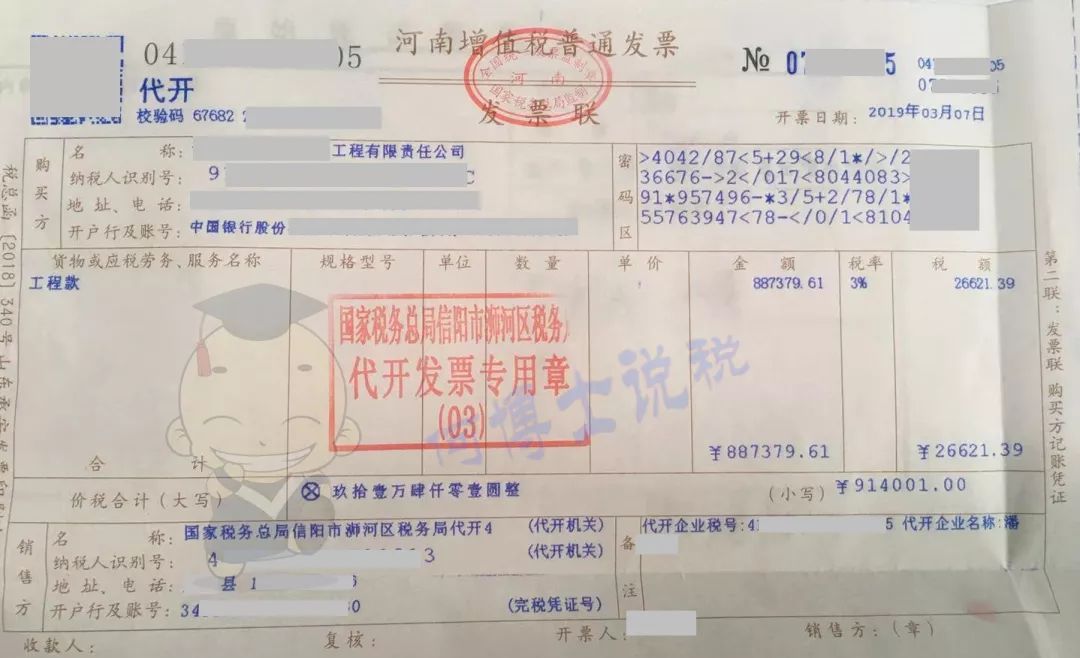 04 05
河南增值税普通发票
№ 07 5
04 05
07
代开
校验码 67682 2
发票联
全国统一发票监制章
河南
国家税务总局监制
开票日期: 2019年03月07日
税总函〔2018〕340号
购买方
名 称: 工程有限责任公司
纳税人识别号: 9 C
地址、电话:
开户行及账号: 中国银行股份
密码区
>4042/87<5+29<8/1*/>/2
36676->2</017<8044083>
91*957496-*3/5+2/78/1*
55763947<78-</0/1<8104
货物或应税劳务、服务名称 规格型号 单位 数量 单价 金额 税率 税额
工程款 887379.61 3% 26621.39
国家税务总局信阳市浉河区税务
代开发票专用章
(03)
阿博士说税
合 计 ¥887379.61 ¥26621.39
价税合计(大写) ⊗玖拾壹万肆仟零壹圆整 (小写) ¥914001.00
第二联:发票联 购买方记账凭证
销售方
名 称: 国家税务总局信阳市浉河区税务局代开4 (代开机关)
纳税人识别号: 4 3 (代开机关)
地址、电话: 县1 6
开户行及账号: 34 30 (完税凭证号)
备注
代开企业税号:4 5 代开企业名称:潘
收款人: 复核: 开票人: 销售方:(章)